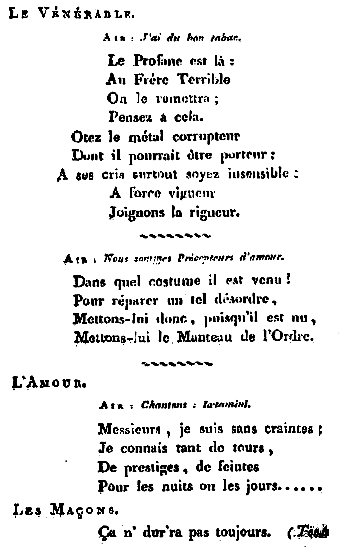 LE VÉNÉRABLE.
AIR : J'ai du bon tabac.
Le Profane est là :
Au Frére Terrible
On le remettra ;
Pensez à cela.
Otez le métal corrupteur
Dont il pourrait être porteur ;
A ses cris surtout soyez insensible :
A force vigueur
Joignons la rigueur.
AIR : Nous sommes Précepteurs d'amour.
Dans quel costume il est venu !
Pour réparer un tel désordre,
Mettons-lui donc, puisqu'il est nu,
Mettons-lui le Manteau de l'Ordre.
L'AMOUR.
AIR : Chantons :
Messieurs, je suis sans craintes ;
Je connais tant de tours,
De prestiges, de feintes
Pour les nuits ou les jours......
LES MAÇONS.
Ça n' dur'ra pas toujours.